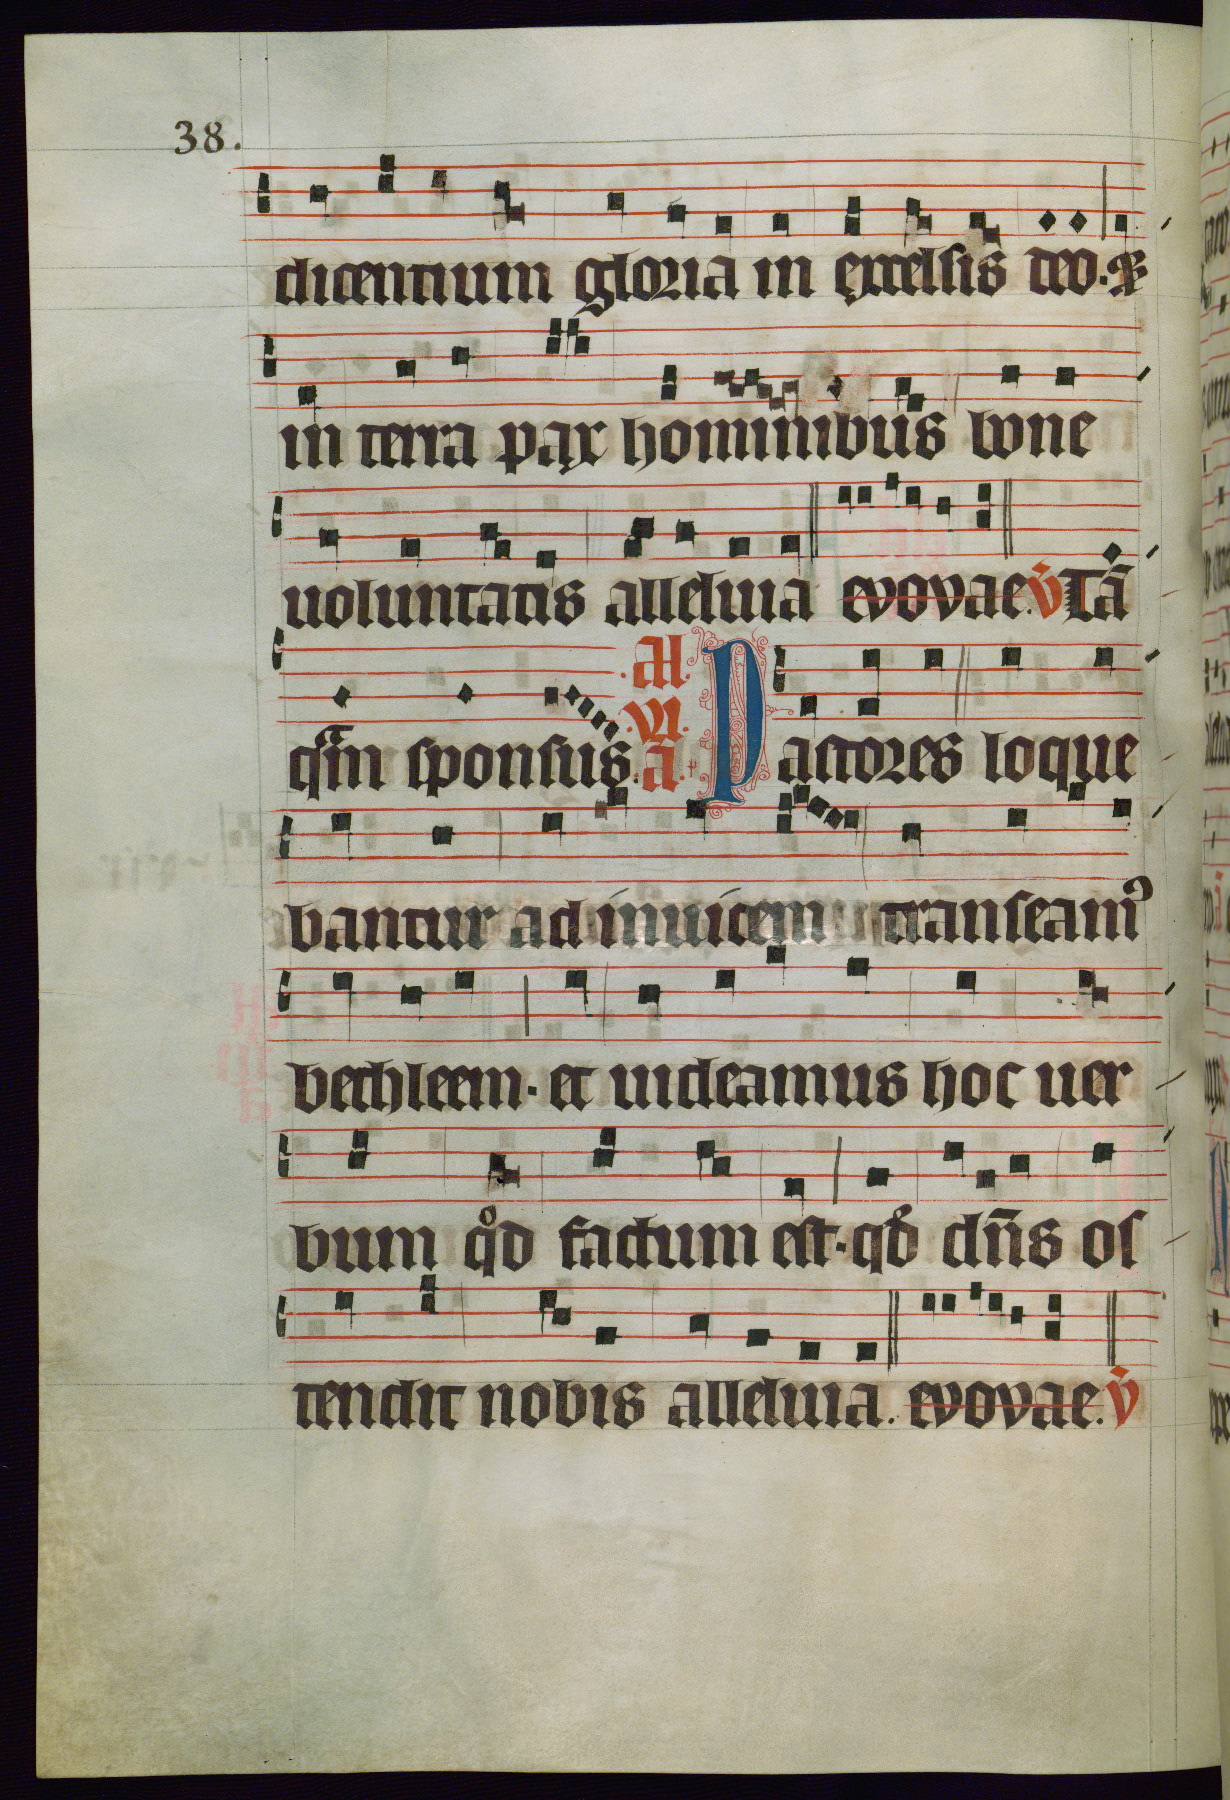 38.
dicentium gloria in excelsis deo. &
in terra pax hominibus bone
voluntatis alleluia evovae. v̄ Tā
qm̄ sponsus. al. vi. a. Pastores loque
bantur ad inuicem transeam⁹
bethleem. et uideamus hoc uer
bum qͦd factum est. qd̓ dn̄s os
tendit nobis alleluia. evovae. v̄